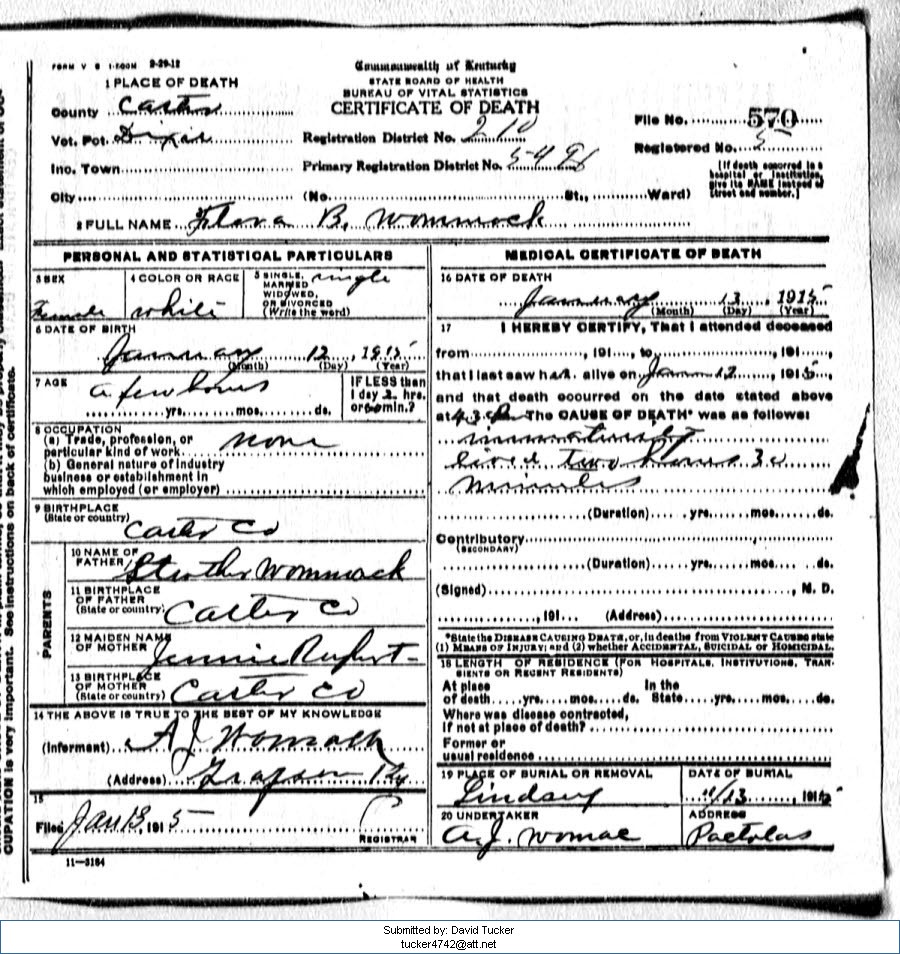 FORM V S 1-500M 2-29-12
Commonwealth of Kentucky
STATE BOARD OF HEALTH
BUREAU OF VITAL STATISTICS
CERTIFICATE OF DEATH
1 PLACE OF DEATH
County Carter
Vot. Pct. Dixie
Inc. Town
City (No. St., Ward)
Registration District No. 210
Primary Registration District No.
File No. 570
Registered No. 5
[If death occurred in a
hospital or institution,
give its NAME instead of
street and number.]
2 FULL NAME Flora B. Wommock
PERSONAL AND STATISTICAL PARTICULARS
3 SEX
Female
4 COLOR OR RACE
white
5 SINGLE, single
MARRIED
WIDOWED,
OR DIVORCED
(Write the word)
6 DATE OF BIRTH
January 12, 1915
(Month) (Day) (Year)
7 AGE
a few hours
yrs. mos. ds.
IF LESS than
1 day 2 hrs.
or min.?
8 OCCUPATION
(a) Trade, profession, or
particular kind of work none
(b) General nature of industry
business or establishment in
which employed (or employer)
9 BIRTHPLACE
(State or country)
Carter Co
PARENTS
10 NAME OF
FATHER Strother Wommack
11 BIRTHPLACE
OF FATHER
(State or country) Carter Co
12 MAIDEN NAME
OF MOTHER Jennie Rupert
13 BIRTHPLACE
OF MOTHER
(State or country) Carter Co
14 THE ABOVE IS TRUE TO THE BEST OF MY KNOWLEDGE
(Informant) A J Womack
(Address) Grayson Ky
15
Filed Jan 13, 1915
REGISTRAR
11-3184
MEDICAL CERTIFICATE OF DEATH
16 DATE OF DEATH
January 13, 1915
(Month) (Day) (Year)
17 I HEREBY CERTIFY, That I attended deceased
from , 191 , to , 191 ,
that I last saw her alive on Jan 12, 1915,
and that death occurred on the date stated above
at The CAUSE OF DEATH* was as follows:
lived two hours 30
minutes
(Duration) yrs. mos. ds.
Contributory
(SECONDARY)
(Duration) yrs. mos. ds.
(Signed) , M. D.
, 191 (Address)
*State the DISEASE CAUSING DEATH, or, in deaths from VIOLENT CAUSES state
(1) MEANS OF INJURY; and (2) whether ACCIDENTAL, SUICIDAL or HOMICIDAL.
18 LENGTH OF RESIDENCE (FOR HOSPITALS, INSTITUTIONS, TRAN-
SIENTS OR RECENT RESIDENTS)
At place In the
of death yrs. mos. ds. State yrs. mos. ds.
Where was disease contracted,
if not at place of death?
Former or
usual residence
19 PLACE OF BURIAL OR REMOVAL
Lindsay
DATE OF BURIAL
/13, 1915
20 UNDERTAKER
A. J. Womac
ADDRESS
Pactolus
CUPATION is very important. See instructions on back of certificate.
Submitted by: David Tucker
tucker4742@att.net